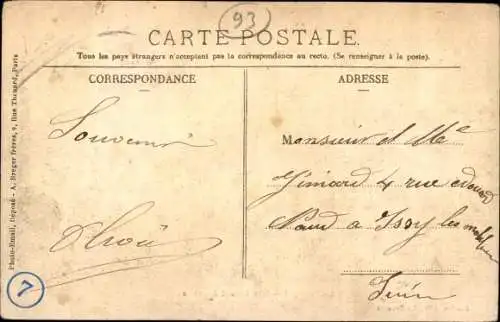 93
CARTE POSTALE.
Tous les pays étrangers n'acceptent pas la correspondance au recto. (Se renseigner à la poste).
CORRESPONDANCE
ADRESSE
Souvenir
Monsieur et Me
4 rue edouard
a Issy les
Photo-Email, Déposé - A. Breger frères, 9, Rue Thénard, Paris
7